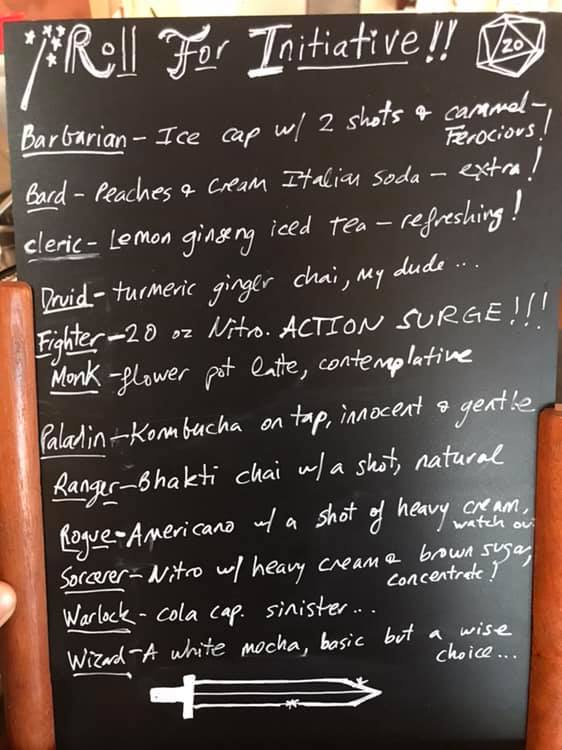 Roll For Initiative!! 20
Barbarian - Ice cap w/ 2 shots & caramel -
Ferocious!
Bard - Peaches & Cream Italian soda - extra!
Cleric - Lemon ginseng iced tea - refreshing!
Druid - turmeric ginger chai, my dude...
Fighter - 20 oz Nitro. ACTION SURGE!!!
Monk - flower pot latte, contemplative
Paladin - Kombucha on tap, innocent & gentle
Ranger - Bhakti chai w/ a shot, natural
Rogue - Americano w/ a shot of heavy cream,
watch ou
Sorcerer - Nitro w/ heavy cream & brown sugar,
concentrate!
Warlock - cola cap. sinister...
Wizard - A white mocha, basic but a wise
choice...